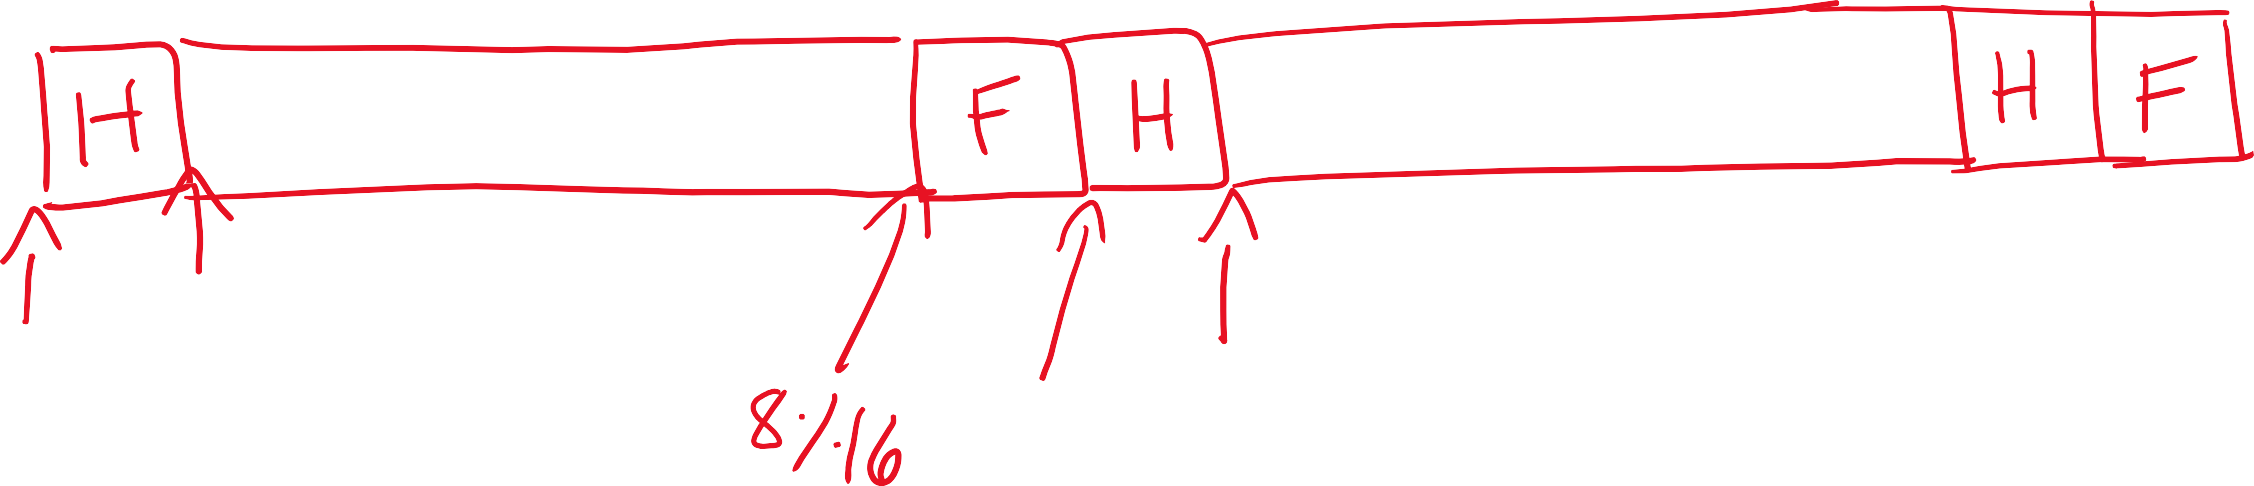 H F H H F
8%16